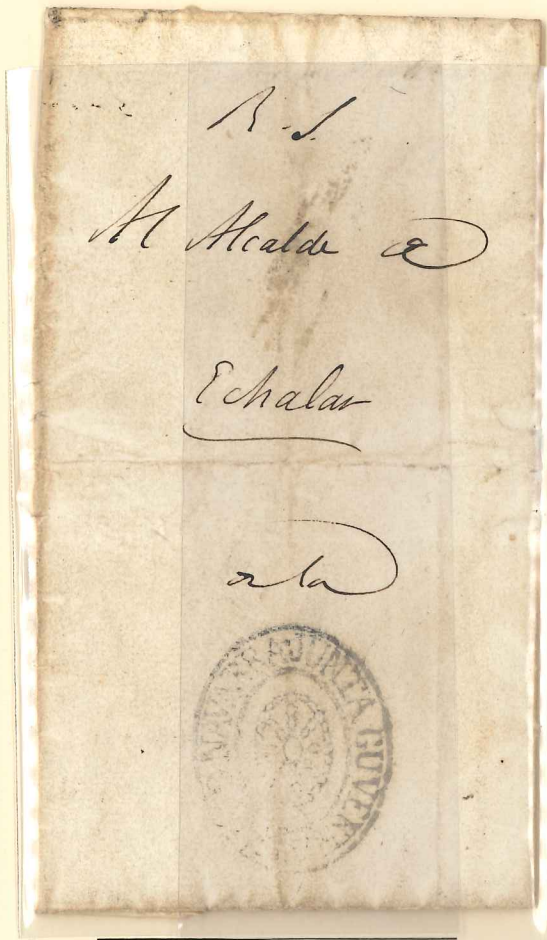 R. S.
Al Alcalde de
Echalar
de la
NAVARRA JUNTA GUVER